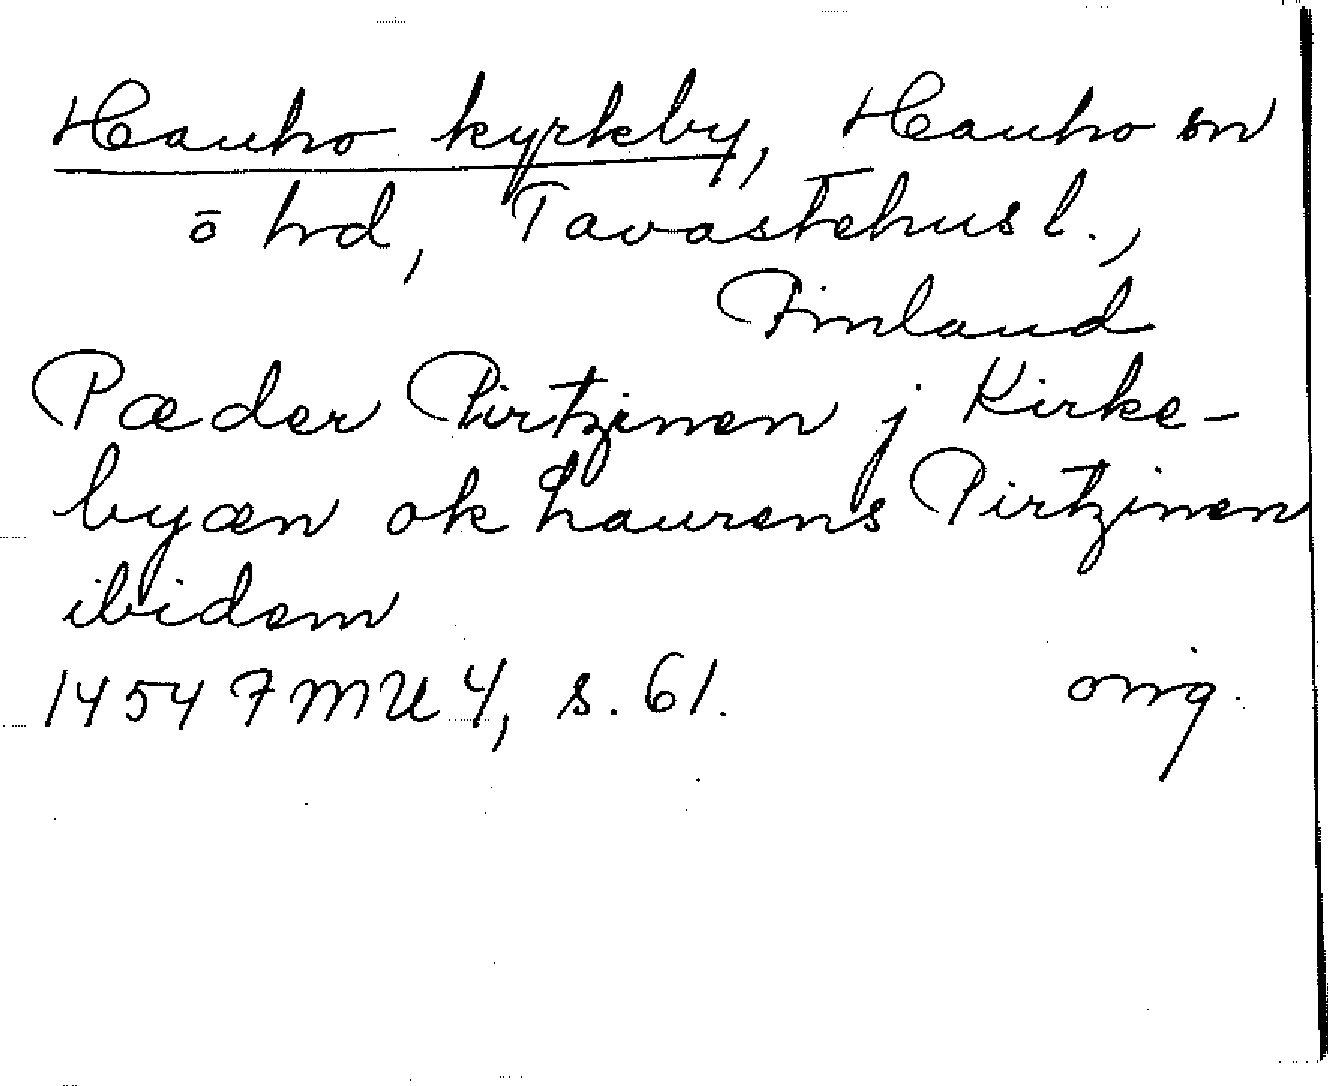 Hauho kyrkby, Hauho sn
o hd, Tavastehus l.,
Finland
Pæder Pirtzinen j Kirke-
byæn ok Laurens Pirtzinen
ibidem
1454 FMU 4, s. 61. orig.